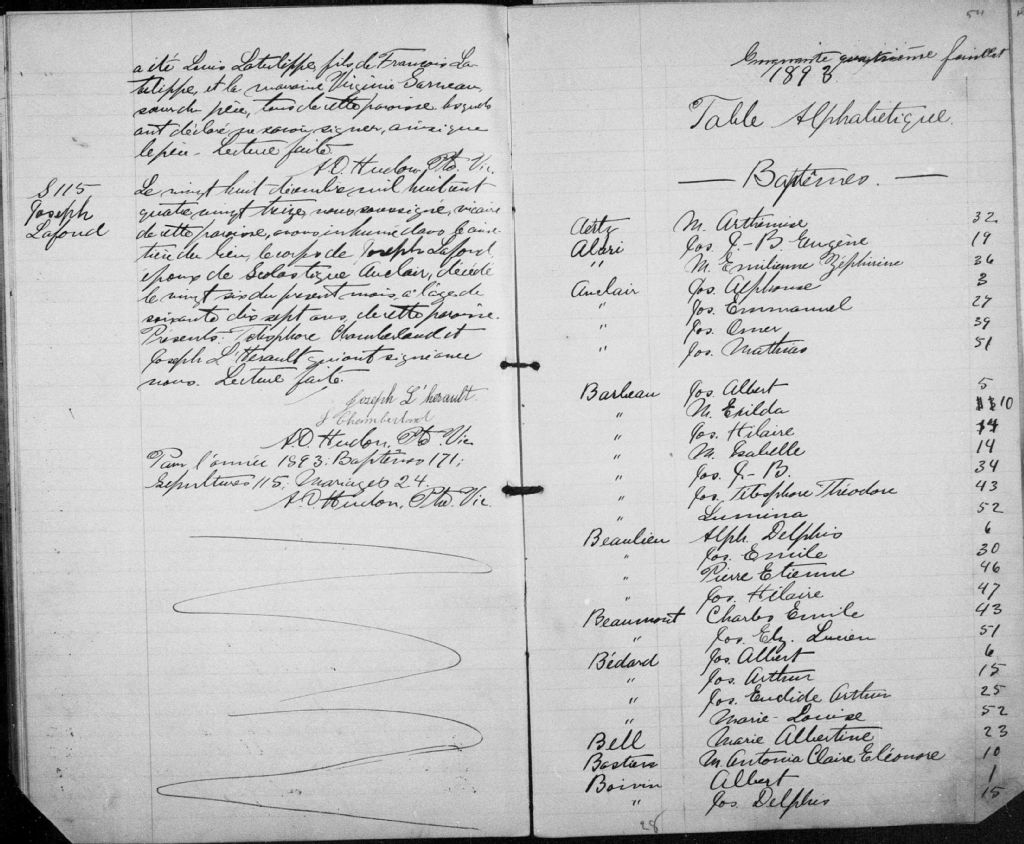 a été Louis Latulippe, fils de François La
tulippe, et la marraine Virginie Garneau,
sœur du père, tous de cette paroisse lesquels
ont déclaré ne savoir signer, ainsi que
le père. Lecture faite.
A.O. Hudon, Ptre. Vic.
S 115
Joseph
Lafond
Le vingt huit décembre mil huit cent
quatre vingt treize, nous soussigné, vicaire
de cette paroisse, avons inhumé dans le cime
tière du lieu, le corps de Joseph Lafond,
époux de Scolastique Auclair, décédé
le vingt six du présent mois, à l'âge de
soixante dix sept ans, de cette paroisse.
Présents: Télesphore Chamberland et
Joseph L'Hérault qui ont signé avec
nous. Lecture faite.
Joseph L'hérault.
J Chamberland
A.O. Hudon, Ptre. Vic.
Pour l'année 1893: Baptêmes 171;
Sépultures 115; Mariages 24.
A.O. Hudon, Ptre. Vic.
54
Cinquante quatrième feuillet
1893.
Table Alphabétique.
— Baptêmes. —
Aerty M. Arthémise 32
Alari Jos. J.-B. Eugène 19
" M. Emilienne Zéphirine 36
Auclair Jos. Alphonse 3
" Jos. Emmanuel 27
" Jos. Omer 39
" Jos. Mathias 51
Barbeau Jos. Albert 5
" M. Exilda 10
" Jos. Hilaire 14
" M. Isabelle 14
" Jos. J.-B. 34
" Jos. Télesphore Théodore 43
" Lumina 52
Beaulieu Alph. Delphis 6
" Jos. Emile 30
" Pierre Etienne 46
" Jos. Hilaire 47
Beaumont Charles Emile 43
" Jos. Elz. Lucien 51
Bédard Jos. Albert 6
" Jos. Arthur 15
" Jos. Euclide Arthur 25
" Marie-Louise 52
Bell Marie Albertine 23
Bastien M. Antonia Claire Eléonore 10
Boivin Albert 1
" Jos. Delphis 15
28